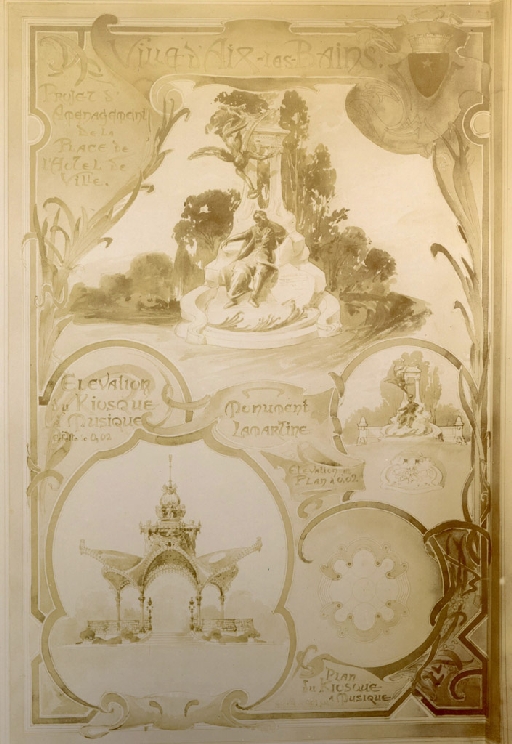 Ville d'Aix-les-Bains.
Projet d'
Aménagement
de la
Place de
l'Hôtel de
Ville.
Elevation
du Kiosque
à Musique
Monument
Lamartine
Elevation et
Plan à 0.02
Plan
du Kiosque
à Musique